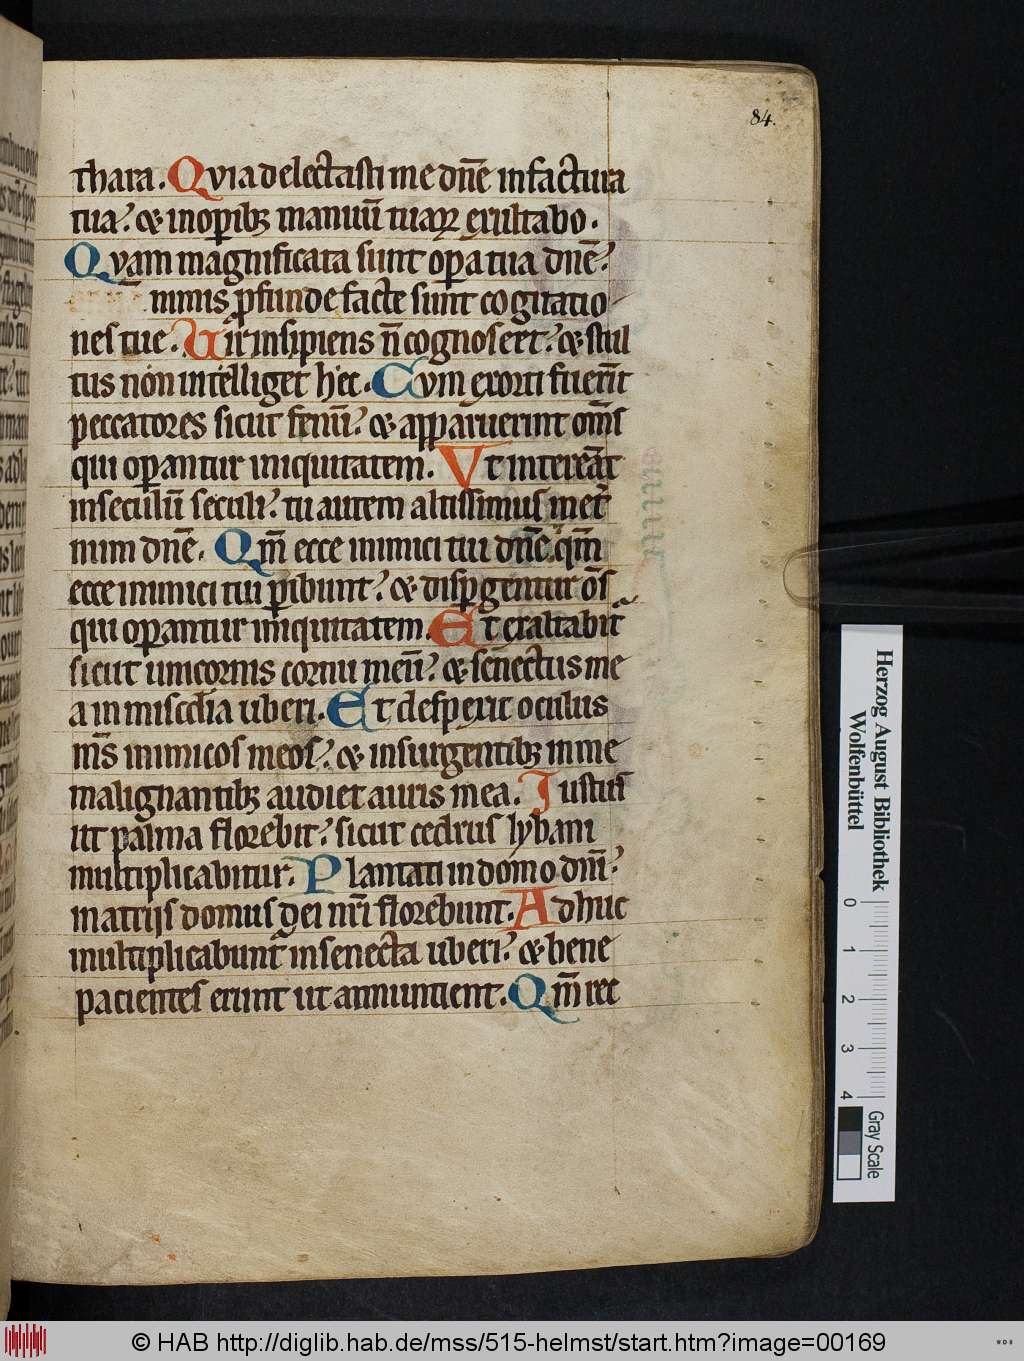 84.
thara. Quia delectasti me dn̄e in factura
tua? & in oꝑibꝫ manuū tuaꝝ exultabo.
Quam magnificata sunt oꝑa tua dn̄e?
nimis ꝓfunde facte sunt cogitatio
nes tue. Uir insipiens n̄ cognoscet? & stul
tus non intelliget hec. Cum exorti fuer̄it
peccatores sicut fenū? & apparuerint om̄s
qui oꝑantur iniquitatem. Ut intereāt
in seculū seculi? tu autem altissimus inet̄
num dn̄e. Qm̄ ecce inimici tui dn̄e qm̄
ecce inimici tui ꝑibunt? & dispgentur om̄s
qui oꝑantur iniquitatem. Et exaltabit̄
sicut unicornis cornu meū? & senectus me
a in misc̄dia uberi. Et despexit oculus
m̄s inimicos meos? & insurgentibꝫ in me
malignantibꝫ audiet auris mea. Iustus
ut palma florebit? sicut cedrus lybani
multiplicabitur. Plantati in domo dn̄i?
in atrijs domus dei nr̄i florebunt. Adhuc
multiplicabunt̄ in senecta uberi? & bene
pacientes erunt ut annuntient. Qm̄ rec
Herzog August Bibliothek
Wolfenbüttel
0 1 2 3 4
Gray Scale
© HAB http://diglib.hab.de/mss/515-helmst/start.htm?image=00169